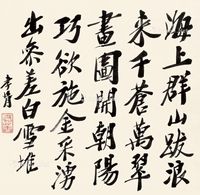 海上群山跋浪
來千蒼萬翠
畫圖開朝陽
巧欲施金采湧
出參差白雪堆
孝胥